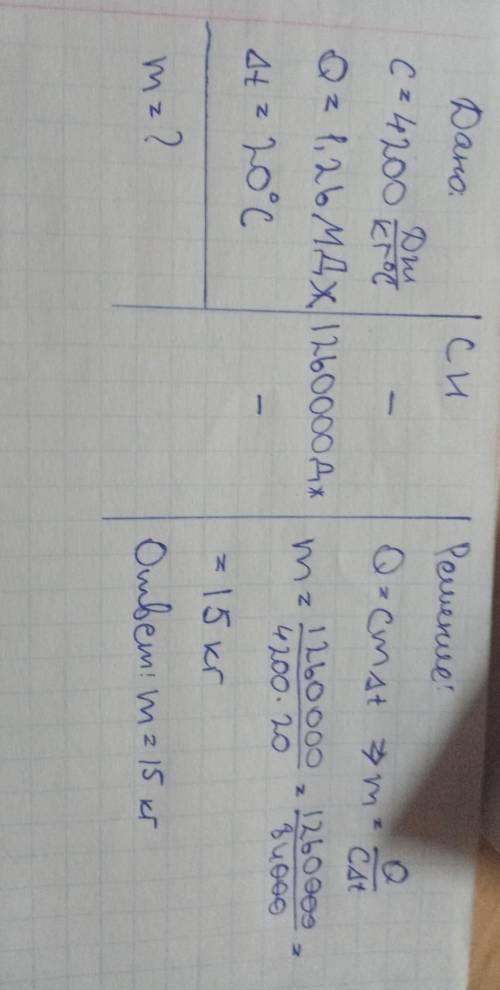 Дано:
c = 4200 Дж/кг°С
Q = 1,26 МДж
Δt = 20°С
m = ?
СИ
–
1260000 Дж
–
Решение:
Q = cmΔt ⇒ m = Q/cΔt
m = 1260000/4200·20 = 1260000/84000 =
= 15 кг
Ответ: m = 15 кг